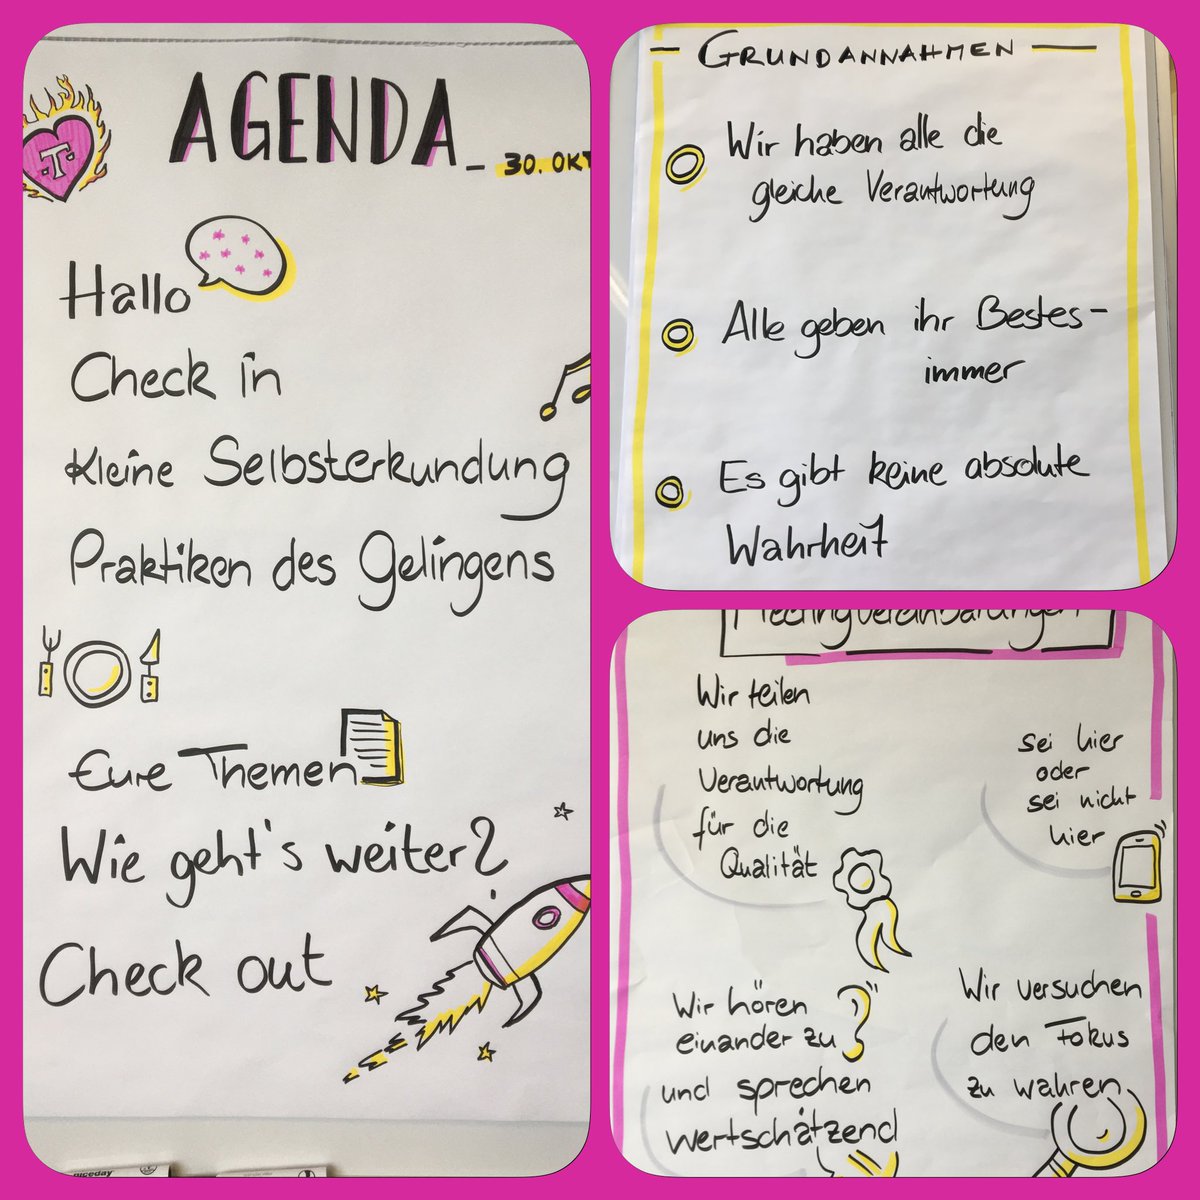 T
AGENDA
- 30. OKT
Hallo
Check in
Kleine Selbsterkundung
Praktiken des Gelingens
Eure Themen
Wie geht's weiter?
Check out
GRUNDANNAHMEN
Wir haben alle die
gleiche Verantwortung
Alle geben ihr Bestes-
immer
Es gibt keine absolute
Wahrheit
Meetingvereinbarungen
Wir teilen
uns die
Verantwortung
für die
Qualität
sei hier
oder
sei nicht
hier
Wir hören
einander zu
und sprechen
wertschätzend
Wir versuchen
den Fokus
zu wahren